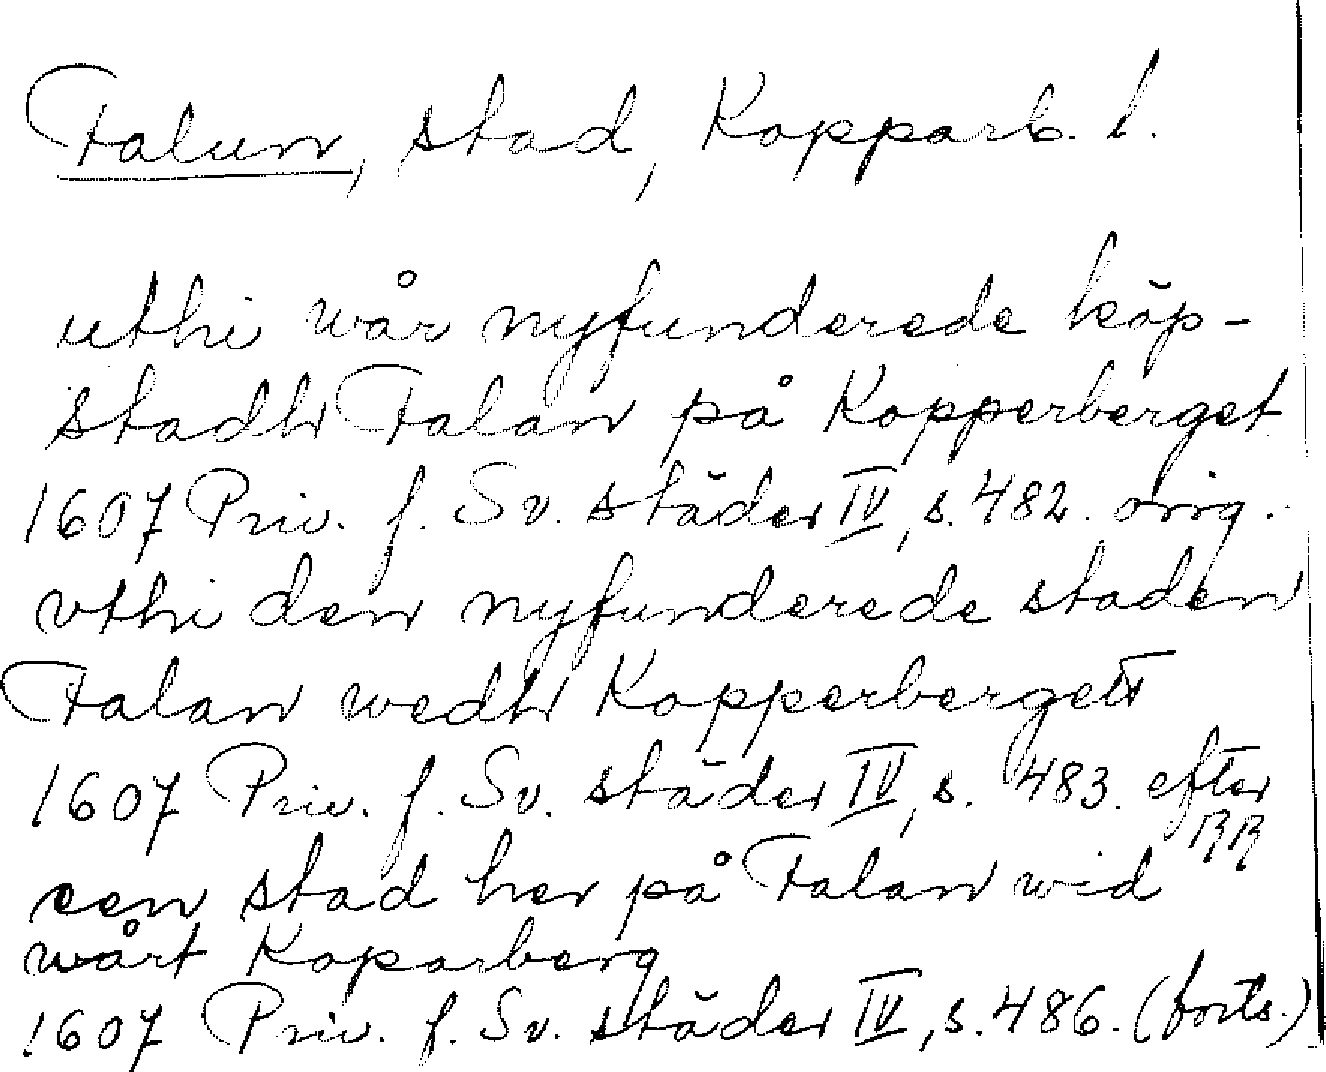 Falun, stad, Kopparb. l.
uthi wår nyfunderede köp-
stadh Falan på Kopperberget
1607 Priv. f. Sv. städer IV, s. 482. orig.
vthi den nyfunderede staden
Falan wedh Kopperbergett
1607 Priv. f. Sv. städer IV, s. 483. efter
RR
een stad her på Falan wid
wårt Koparberg
1607 Priv. f. Sv. städer IV, s. 486. (forts.)